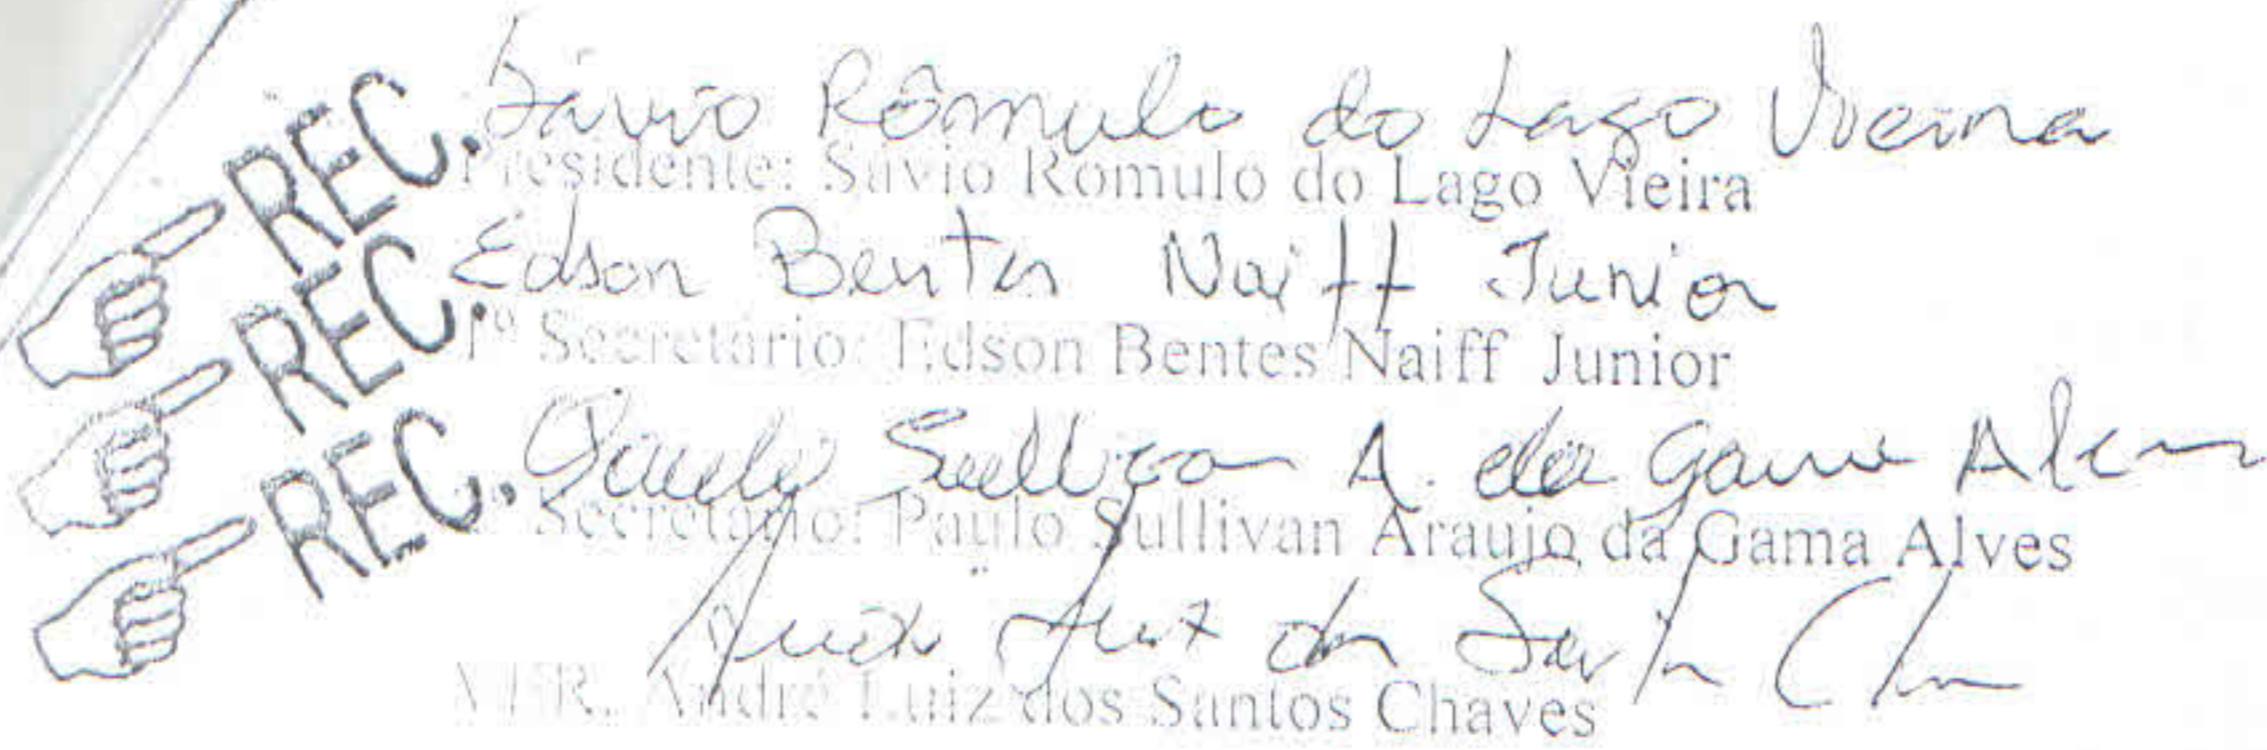 REC. Sávio Rômulo do Lago Vieira
Presidente: Sávio Romulo do Lago Vieira
REC. Edson Bentes Naiff Junior
1º Secretário: Edson Bentes Naiff Junior
REC. Paulo Sullivan A. da Gama Alves
Secretário: Paulo Sullivan Araujo da Gama Alves
André Luiz dos Santos
André Luiz dos Santos Chaves